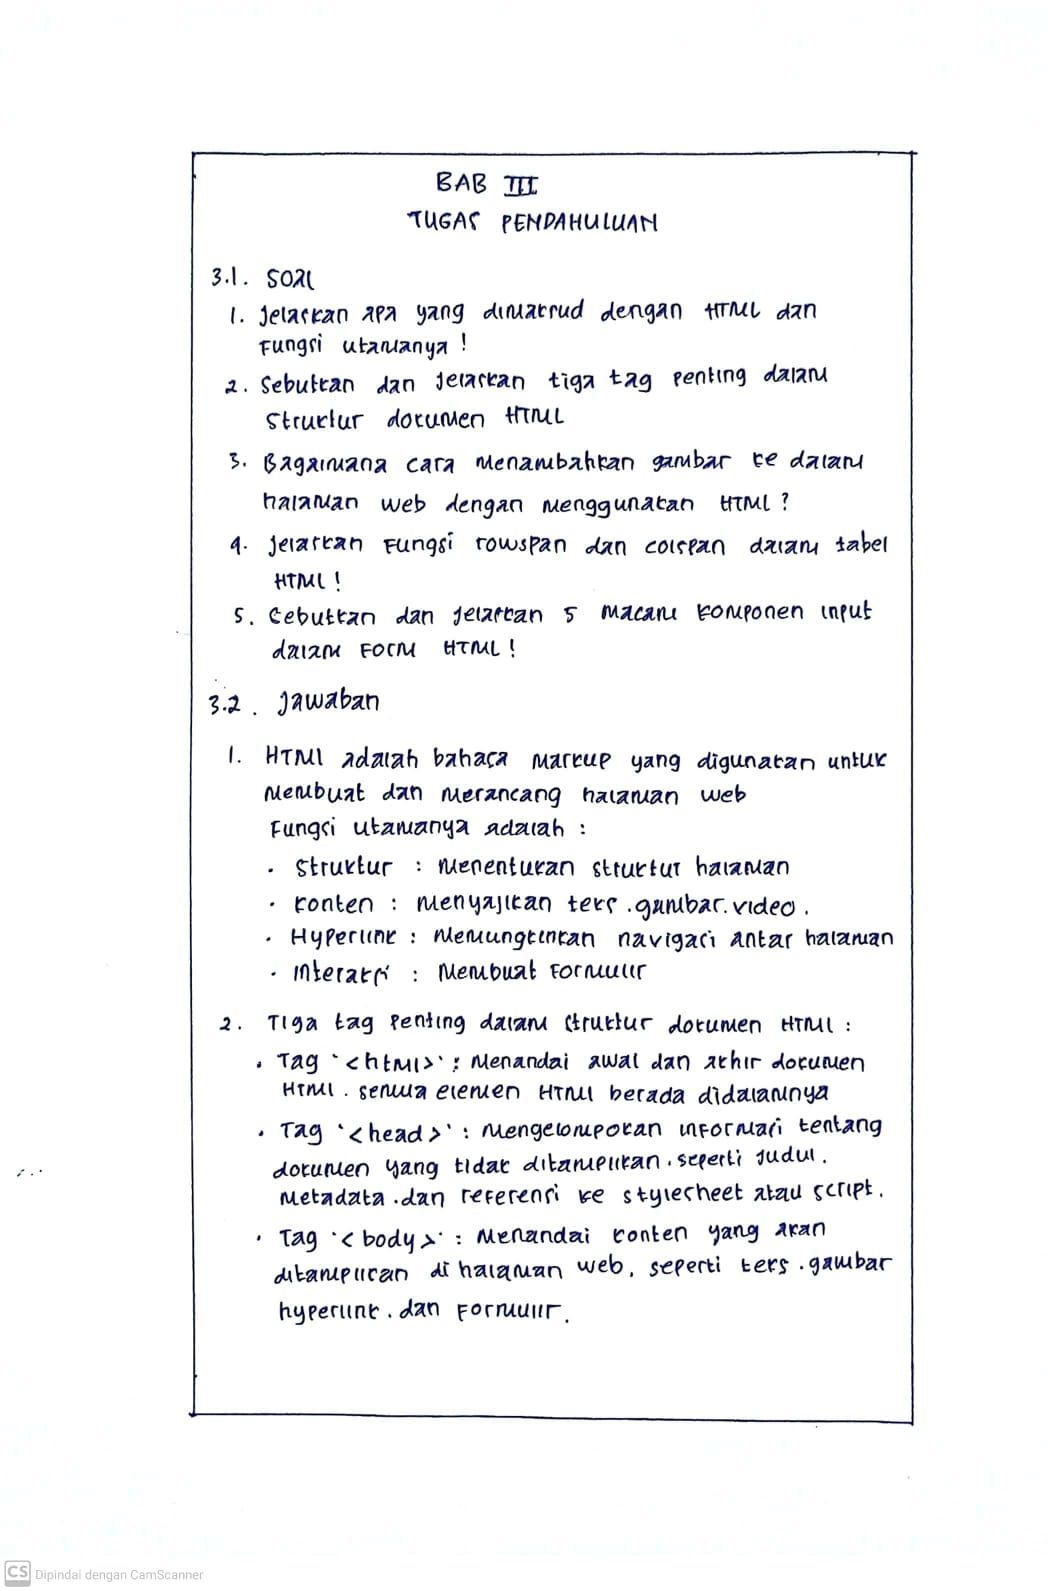 BAB III
TUGAS PENDAHULUAN
3.1. SOAL
1. Jelaskan apa yang dimaksud dengan HTML dan
Fungsi utamanya !
2. Sebutkan dan Jelaskan tiga tag penting dalam
Struktur dokumen HTML
3. Bagaimana cara menambahkan gambar ke dalam
halaman web dengan menggunakan HTML ?
4. Jelaskan Fungsi rowspan dan colspan dalam tabel
HTML !
5. Sebutkan dan Jelaskan 5 macam komponen input
dalam Form HTML !
3.2. Jawaban
1. HTMl adalah bahasa markup yang digunakan untuk
membuat dan merancang halaman web
Fungsi utamanya adalah :
· Struktur : Menentukan struktur halaman
· Konten : Menyajikan teks . gambar . video .
· Hyperlink : Memungkinkan navigasi antar halaman
· Interaksi : Membuat Formulir
2. Tiga tag Penting dalam Struktur dokumen HTMl :
· Tag `<html>` : Menandai awal dan akhir dokumen
HTMl . semua elemen HTMl berada didalamnya
· Tag `<head>` : Mengelompokan informasi tentang
dokumen yang tidak ditampilkan . seperti Judul .
Metadata . dan referensi ke stylesheet atau script .
· Tag `<body>` : Menandai konten yang akan
ditampilkan di halaman web . seperti teks . gambar
hyperlink . dan Formulir .
CS Dipindai dengan CamScanner